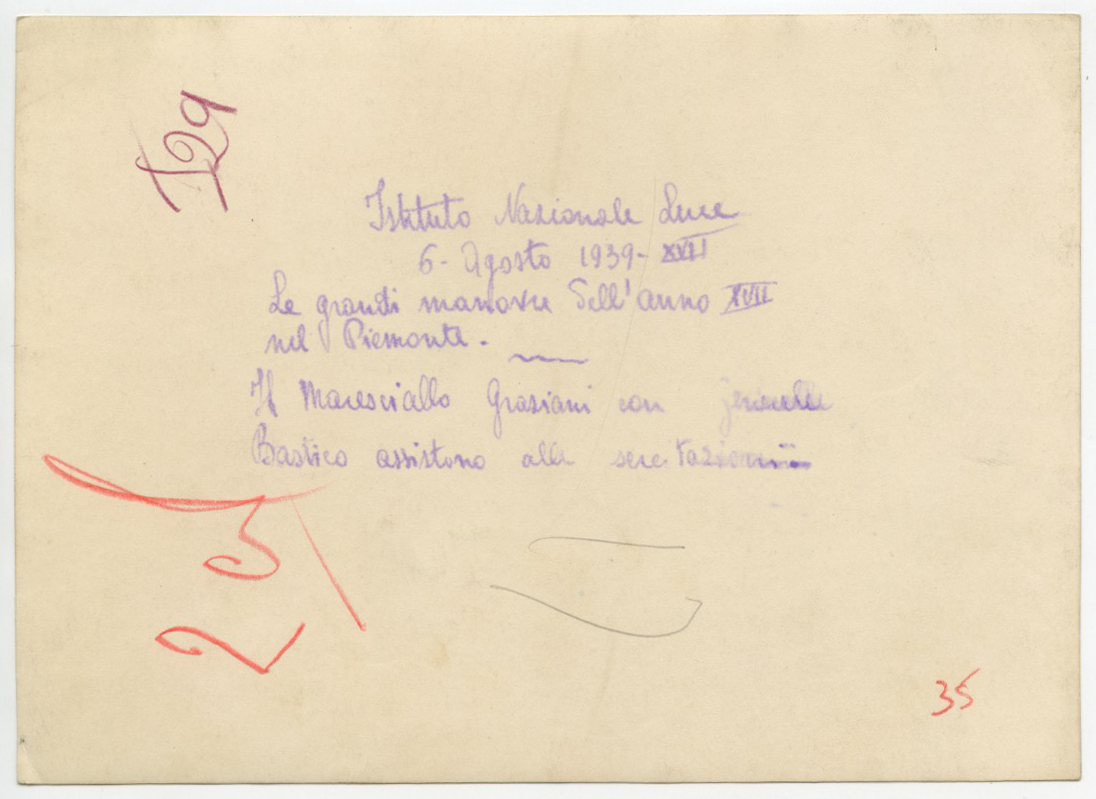 I29
Istituto Nazionale Luce
6- Agosto 1939- XVII
Le grandi manovre dell'anno XVII
nel Piemonte.
Il Maresciallo Graziani con
Bastico assistono alle
35